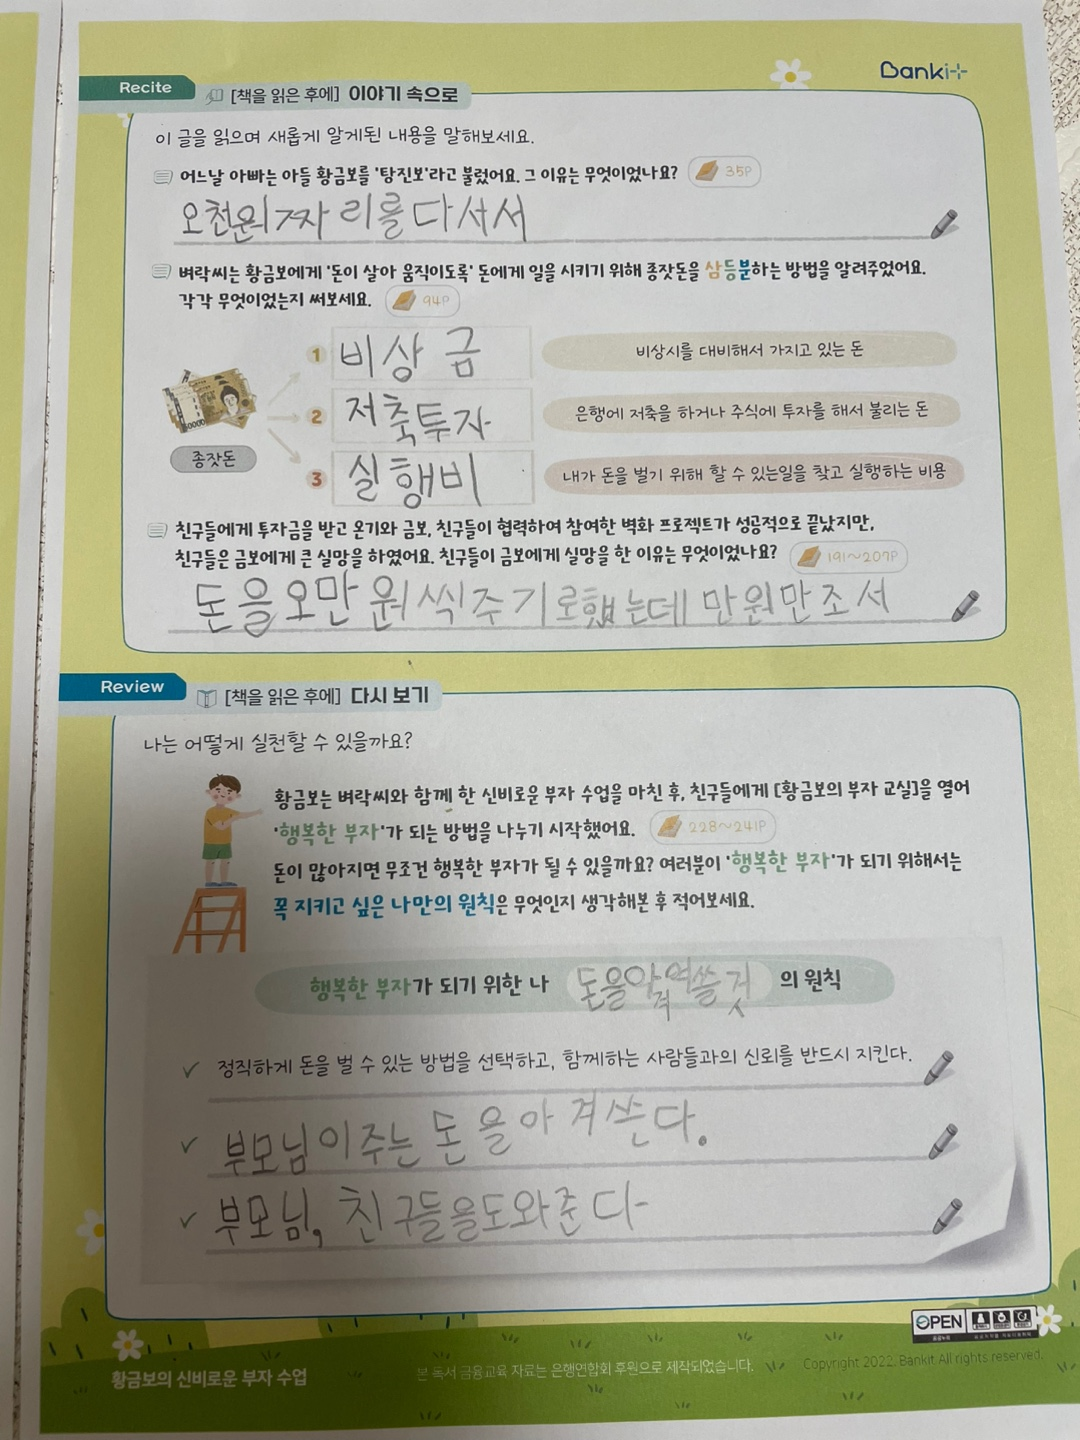 Bankit
Recite
[책을 읽은 후에] 이야기 속으로
이 글을 읽으며 새롭게 알게된 내용을 말해보세요.
어느날 아빠는 아들 황금보를 '탕진보'라고 불렀어요. 그 이유는 무엇이었나요? 35P
오천원짜리를 다 서서
벼락씨는 황금보에게 '돈이 살아 움직이도록' 돈에게 일을 시키기 위해 종잣돈을 삼등분하는 방법을 알려주었어요.
각각 무엇이었는지 써보세요. 94P
1 비상금 비상시를 대비해서 가지고 있는 돈
2 저축투자 은행에 저축을 하거나 주식에 투자를 해서 불리는 돈
종잣돈
3 실행비 내가 돈을 벌기 위해 할 수 있는일을 찾고 실행하는 비용
친구들에게 투자금을 받고 온기와 금보, 친구들이 협력하여 참여한 벽화 프로젝트가 성공적으로 끝났지만,
친구들은 금보에게 큰 실망을 하였어요. 친구들이 금보에게 실망을 한 이유는 무엇이었나요? 191~207P
돈을 오만원씩 주기로했는데 만원만 조서
Review
[책을 읽은 후에] 다시 보기
나는 어떻게 실천할 수 있을까요?
황금보는 벼락씨와 함께 한 신비로운 부자 수업을 마친 후, 친구들에게 [황금보의 부자 교실]을 열어
'행복한 부자'가 되는 방법을 나누기 시작했어요. 228~241P
돈이 많아지면 무조건 행복한 부자가 될 수 있을까요? 여러분이 '행복한 부자'가 되기 위해서는
꼭 지키고 싶은 나만의 원칙은 무엇인지 생각해본 후 적어보세요.
행복한 부자가 되기 위한 나 돈을 쓸 것 의 원칙
정직하게 돈을 벌 수 있는 방법을 선택하고, 함께하는 사람들과의 신뢰를 반드시 지킨다.
부모님이 주는 돈을 아겨 쓴다.
부모님, 친구들을 도와준다
OPEN
황금보의 신비로운 부자 수업
본 독서 금융교육 자료는 은행연합회 후원으로 제작되었습니다.
Copyright 2022. Bankit All rights reserved.